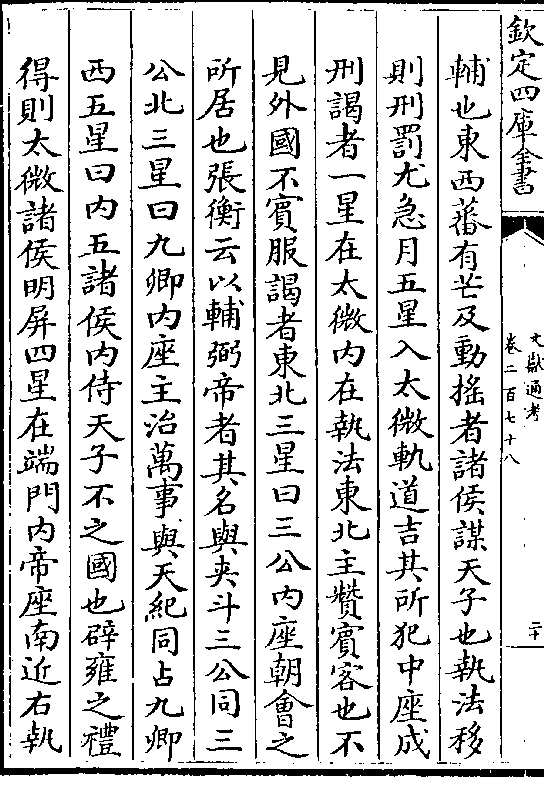 欽定四庫全書
文獻通考
卷二百七十八
二十
輔也東西蕃有芒及動搖者諸侯謀天子也執法移
則刑罰尤急月五星入太微軌道吉其所犯中座成
刑謁者一星在太微內在執法東北主贊賓客也不
見外國不賓服謁者東北三星曰三公內座朝會之
所居也張衡云以輔弼帝者其名與夾斗三公同三
公北三星曰九卿內座主治萬事與天紀同占九卿
西五星曰內五諸侯內侍天子不之國也辟雍之禮
得則太微諸侯明屏四星在端門內帝座南近右執